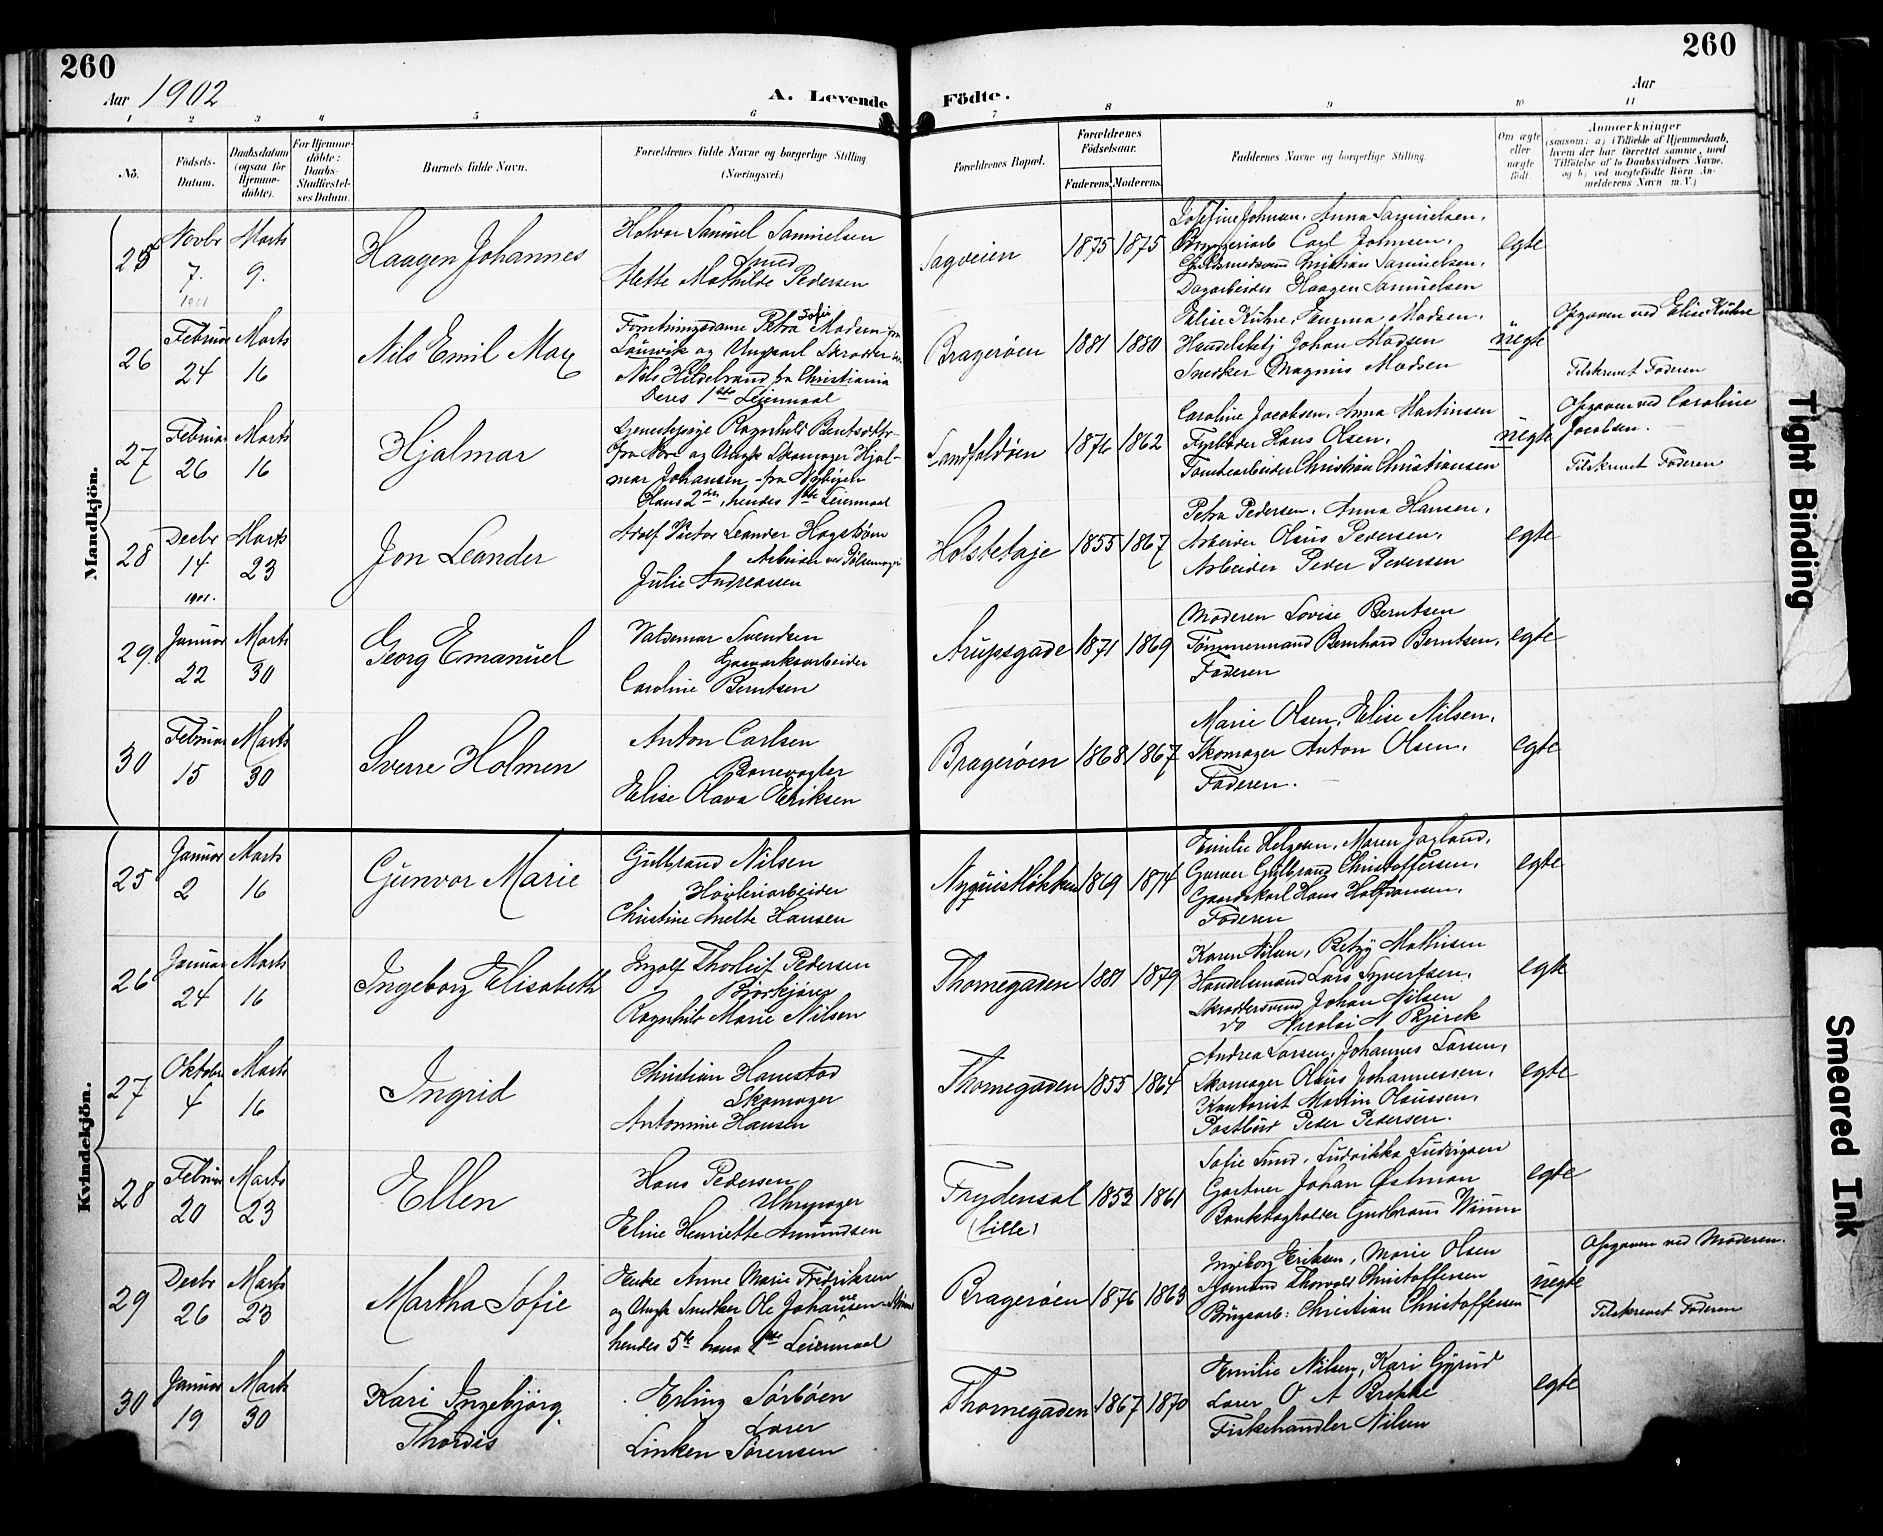 260
260
Aar 1902
A. Levende Födte.
Aar
1 2 3 4 5 6 7 8 9 10 11
No.
Födsels-
Datum.
Daabsdatum
(ogsaa for
Hjemme-
döbte).
For Hjemme-
döbte:
Daabs-
Stadfæstel-
ses Datum.
Barnets fulde Navn.
Forældrenes fulde Navne og borgerlige Stilling
(Næringsvei.)
Forældrenes Bopæl.
Forældrenes
Födselsaar.
Faderens. Moderens.
Faddernes Navne og borgerlige Stilling.
Om ægte
eller
uægte
födt.
Anmærkninger
(saasom: a) i Tilfælde af Hjemmedaab,
hvem der har forrettet samme, med
Tilföielse af to Daabsvidners Navne.
og b) ved uegtefödte Börn An-
melderens Navn m. V.)
Mandkjön.
25
Novbr
7.
1901
Marts
9.
Haagen Johannes
Halvor Samuel Samuelsen
Smed
Mette Mathilde Pedersen
Sagveien
1875 1875
Josefine Johnsen, Anna Samuelsen,
Bryggeriarb Carl Johnsen,
Christian Samuelsen,
Dagarbeider Haagen Samuelsen
egte
26
Februar
24
Marts
16
Nils Emil Max
Forretningsdame Petra Sofie Madsen fra
Laurvik og Ungkarl Skrædder
Nils Hildebrand fra Christiania
Deres 1ste Leiermaal
Bragerøen
1881 1880
Elise Kühne, Emma Madsen,
Handelsbetj Johan Madsen
Snedker Magnus Madsen
uegte
Opgaven ved Elise Kühne
Tilskrevet Faderen
27
Februar
26
Marts
16
Hjalmar
Tjenestepige Ragnhild Bentsdatter
fra Nore og Ungk Skomager Hjal-
mar Johansen fra Nybyen
Hans 2den, hendes 1ste Leiermaal
Landfaldøen
1876 1862
Caroline Jacobsen, Anna Martinsen
Fyrbøder Hans Olsen,
Tomtearbeider Christian Christiansen
uegte
Opgaven ved Caroline
Jacobsen.
Tilskrevet Faderen
28
Decbr
14
1901.
Marts
23
Jon Leander
Adolf Victor Leander Hagstrøm
Arbeider ved Pølsemager
Julie Andreassen
Holsteløje
1855 1867
Petra Pedersen, Anna Hansen,
Arbeider Olaus Pedersen,
Arbeider Peder Pedersen
egte
29.
Januar
22
Marts
30
Georg Emanuel
Valdemar Svendsen
Gasværksarbeider
Caroline Berntsen
Arupsgade
1871 1869
Moderen Lovise Berntsen
Tømmermand Bernhard Berntsen,
Faderen
egte
30
Februar
15
Marts
30
Sverre Holmen
Anton Carlsen
Banevogter
Elise Olava Eriksen
Bragerøen
1868 1867
Marie Olsen, Elise Nilsen,
Skomager Anton Olsen,
Faderen.
egte
Kvindekjön.
25
Januar
2
Marts
16
Gunvor Marie
Gulbrand Nilsen
Høvleriarbeider
Christine Anette Hansen
Nyquistløkken
1869 1874
Emilie Helgesen, Maren Jagland,
Garver Gulbrand Christoffersen,
Gaardskarl Hans Halfvarsen,
Faderen
egte
26
Januar
24
Marts
16
Ingeborg Elisabeth
Ingolf Thorleif Pedersen
Ragnhild Marie Nilsen
Thornegaden
1881 1879
Karen Nilsen, Betzy Mathisen
Handelsmand Lars Syvertsen,
Skræddersvend Johan Nilsen
do Nicolai N Bjerck
egte
27
Oktober
4
Marts
16
Ingrid
Christian Hanestad
Skomager
Antonine Hansen
Thornegaden
1855 1864
Andrea Larsen, Johannes Larsen,
Skomager Olaus Johannessen,
Kontorist Martin Olaussen,
Postbud Peder Pedersen.
egte
28
Februar
20
Marts
23
Ellen
Hans Pedersen
Uhrmager
Eline Henriette Amundsen
Frydensal
(lille)
1853 1861
Sofie Lund, Ludvikka Ludvigsen
Gartner Johan Østman
Bankbogholder Gudbrand Wium
egte
29
Decbr
26
Marts
23
Martha Sofie
Enke Anne Marie Fredriksen
og Ungk Snedker Ole Johansen
hendes 5te hans 1ste Leiermaal
Bragerøen
1876 1863
Ingeborg Eriksen, Marie Olsen
Sjømand Thorvald Christoffersen
Brugsarb: Christian Christoffersen
uegte
Opgaven ved Moderen.
Tilskrevet Faderen
30
Januar
19
Marts
30
Kari Ingebjörg
Thordis
Erling Sørbøen
Lærer
Linken Sørensen
Thornegaden
1867 1870
Emilie Nilsen, Kari Gjerud
Lærer O A Brekke
Fiskehandler Nilsen
egte
Tight Binding
Smeared Ink